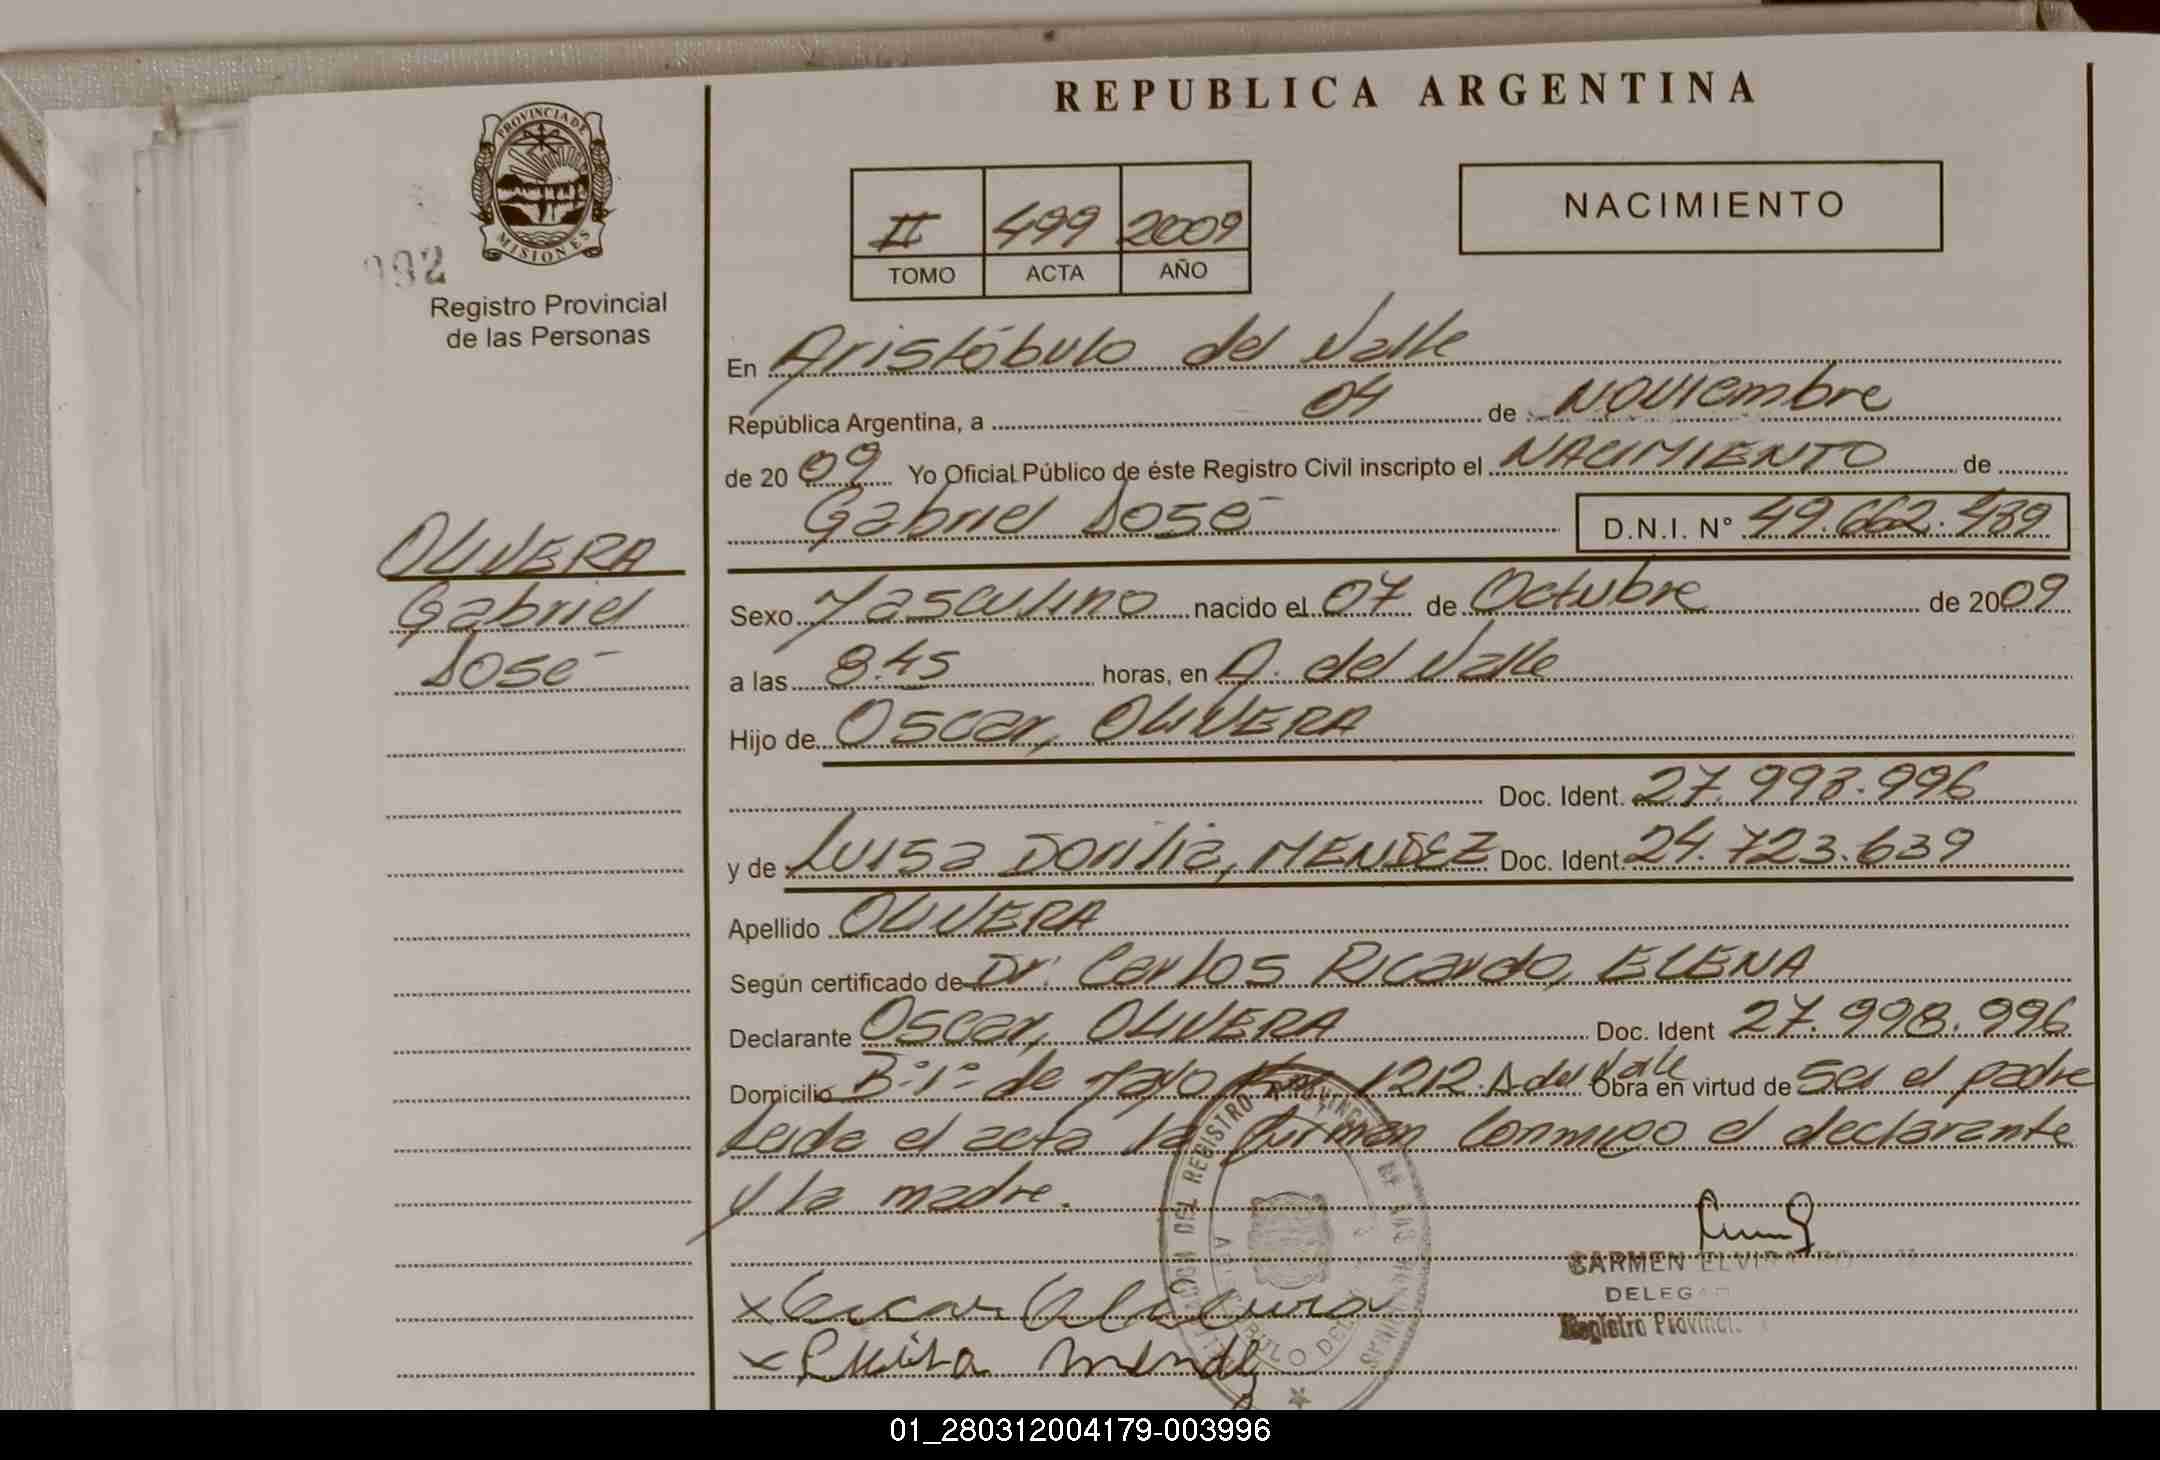 REPUBLICA ARGENTINA
PROVINCIA DE MISIONES
992
Registro Provincial
de las Personas
II 499 2009
TOMO ACTA AÑO
NACIMIENTO
En Aristóbulo del Valle
República Argentina, a 04 de Noviembre
de 2009 Yo Oficial Público de éste Registro Civil inscripto el NACIMIENTO de
Gabriel José D.N.I. N° 49.662.489
OLIVERA
Gabriel
José
Sexo Masculino nacido el 07 de Octubre de 2009
a las 8.45 horas, en A. del Valle
Hijo de Oscar, OLIVERA
Doc. Ident. 27.998.996
y de Luisa Dorilia, MENDEZ Doc. Ident. 24.723.639
Apellido OLIVERA
Según certificado de Dr. Carlos Ricardo, ELENA
Declarante Oscar, OLIVERA Doc. Ident 27.998.996
Domicilio B° 1° de Mayo Km 1212. A del Valle Obra en virtud de Ser el padre
Leida el acta la firman conmigo el declarante
y la madre.
CARMEN ELVIRA
DELEG
Registro Provinci
x Oscar Olivera
x Luisa Mendez
01_280312004179-003996